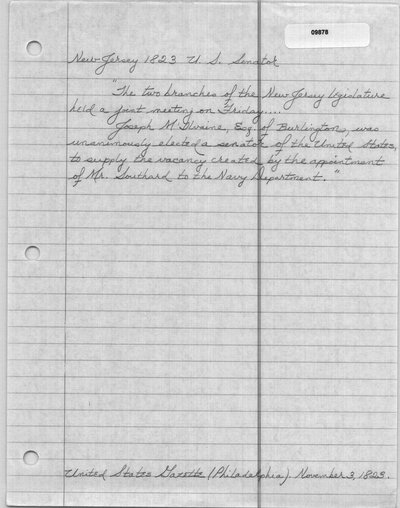 09878
New Jersey 1823 U. S. Senator
"The two branches of the New Jersey legislature
held a joint meeting on Friday....
Joseph M'Ilvaine, Esq. of Burlington, was
unanimously elected a senator of the United States,
to supply the vacancy created by the appointment
of Mr. Southard to the Navy Department."
United States Gazette (Philadelphia). November 3, 1823.